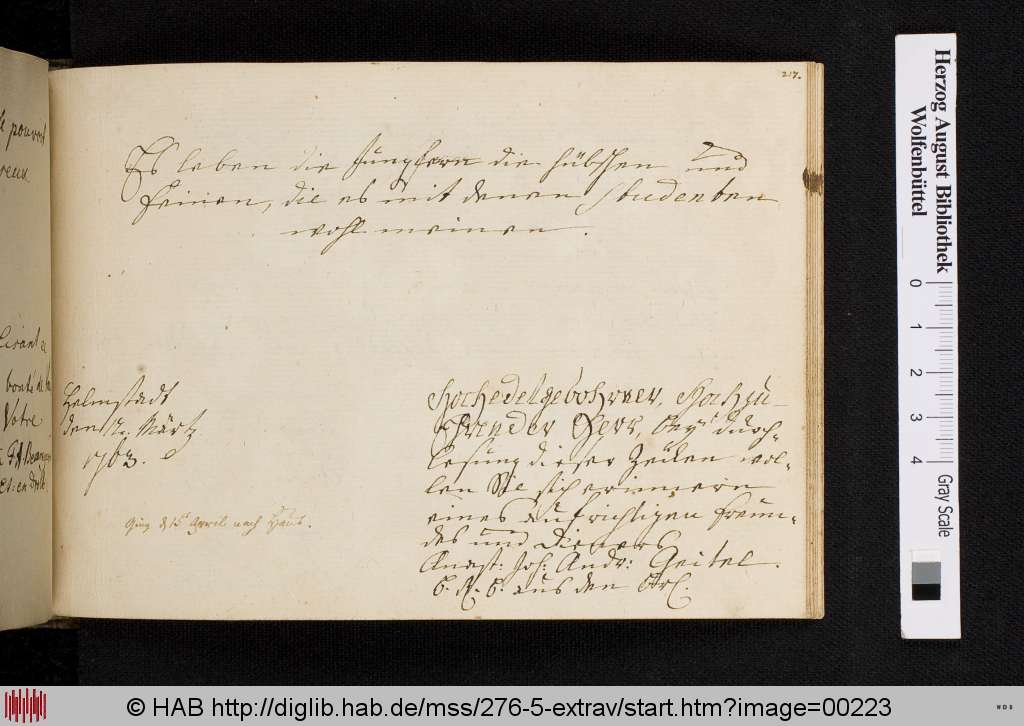 217.
Es leben die Jungfern die hübschen und
feinen, die es mit denen Studenten
wohl meinen.
Helmstadt
den 12. Märtz.
1763.
Ging d. 15t April nach Haus.
Hochedelgebohrner, Hochzu-
Ehrender Herr, bey durch-
lesung dieser Zeilen wol-
len Sie sich erinnern
eines aufrichtigen Freun-
des und Dieners
Anast: Joh: Andr: Geitel.
aus den
pouvoit
Lisant
bonté
Votre
Herzog August Bibliothek
Wolfenbüttel
0 1 2 3 4
Gray Scale
© HAB http://diglib.hab.de/mss/276-5-extrav/start.htm?image=00223
WDB